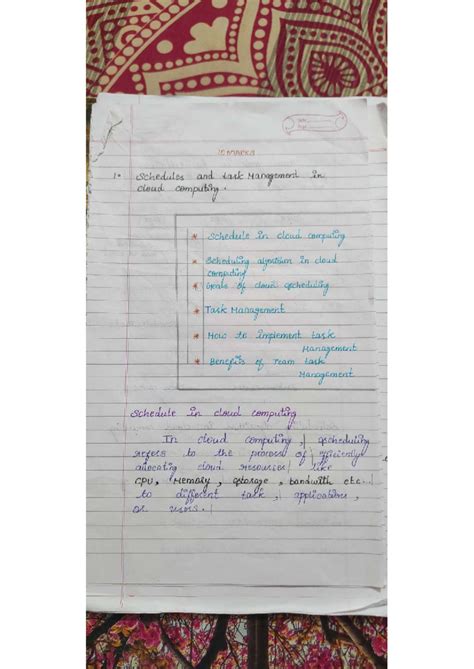 10 MARKS
1. Schedules and task Management in
cloud computing.
* Schedule in cloud computing
* Scheduling algorithm in cloud
computing
* Goals of cloud scheduling
* Task Management
* How to implement task
Management
* Benefits of Team task
Management
Schedule in cloud computing
In cloud computing, scheduling
refers to the process of efficiently
allocating cloud resources like
CPU, Memory, storage, bandwith etc..
to different task, applications,
or users.